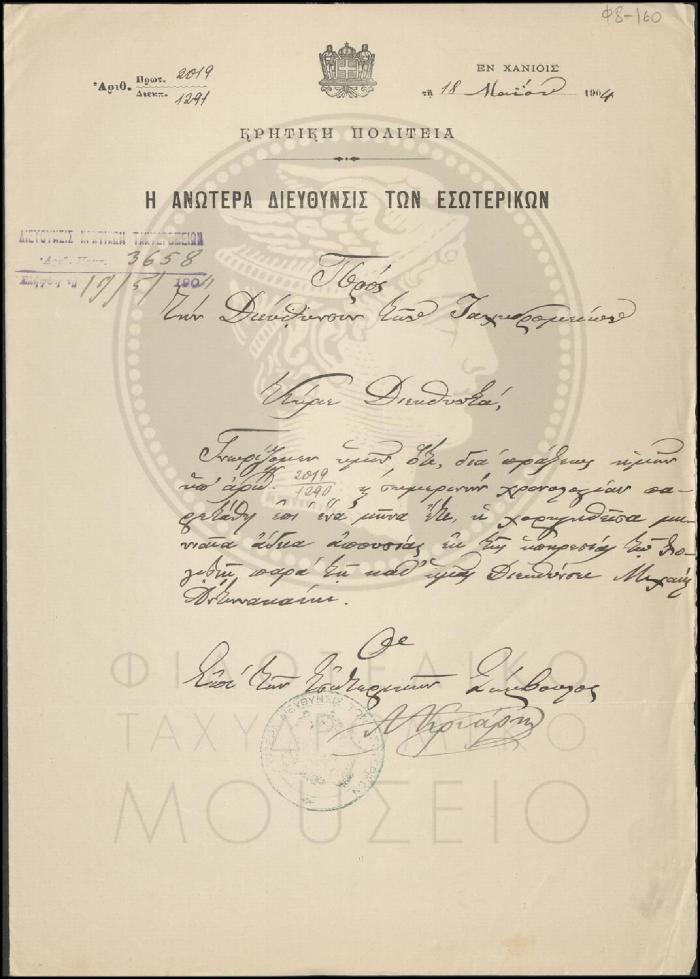 Φ8-160
Ἀριθ. Πρωτ. 2019
Διεκπ. 1291
ΕΝ ΧΑΝΙΟΙΣ
τῇ 18 Μαΐου 1904
ΚΡΗΤΙΚΗ ΠΟΛΙΤΕΙΑ
Η ΑΝΩΤΕΡΑ ΔΙΕΥΘΥΝΣΙΣ ΤΩΝ ΕΣΩΤΕΡΙΚΩΝ
ΔΙΕΥΘΥΝΣΙΣ ΚΡΗΤΙΚΩΝ ΤΑΧΥΔΡΟΜΕΙΩΝ
Ἀριθ. Πρωτ. 3658
19/5/1904
Πρὸς
τὴν Διεύθυνσιν τῶν Ταχυδρομείων
Κύριε Διευθυντά,
Γνωρίζομεν ὑμῖν ὅτι, διὰ πράξεως ἡμῶν
ὑπ' ἀριθ. 2019/1290 σημερινὴν χρονολογίαν πα-
ρετάθη ἐπὶ ἕνα μῆνα ἔτι, ἡ χορηγηθεῖσα μη-
νιαία ἄδεια ἀπουσίας ἐκ τῆς ὑπηρεσίας
παρὰ τῇ καθ' ἡμᾶς Διευθύνσει Μιχαὴλ
Ὁ
Ἐπὶ τῶν Ἐσωτερικῶν Σύμβουλος
ΦΙΛΟΤΕΛΙΚΟ
ΤΑΧΥΔΡΟΜΙΚΟ
ΜΟΥΣΕΙΟ